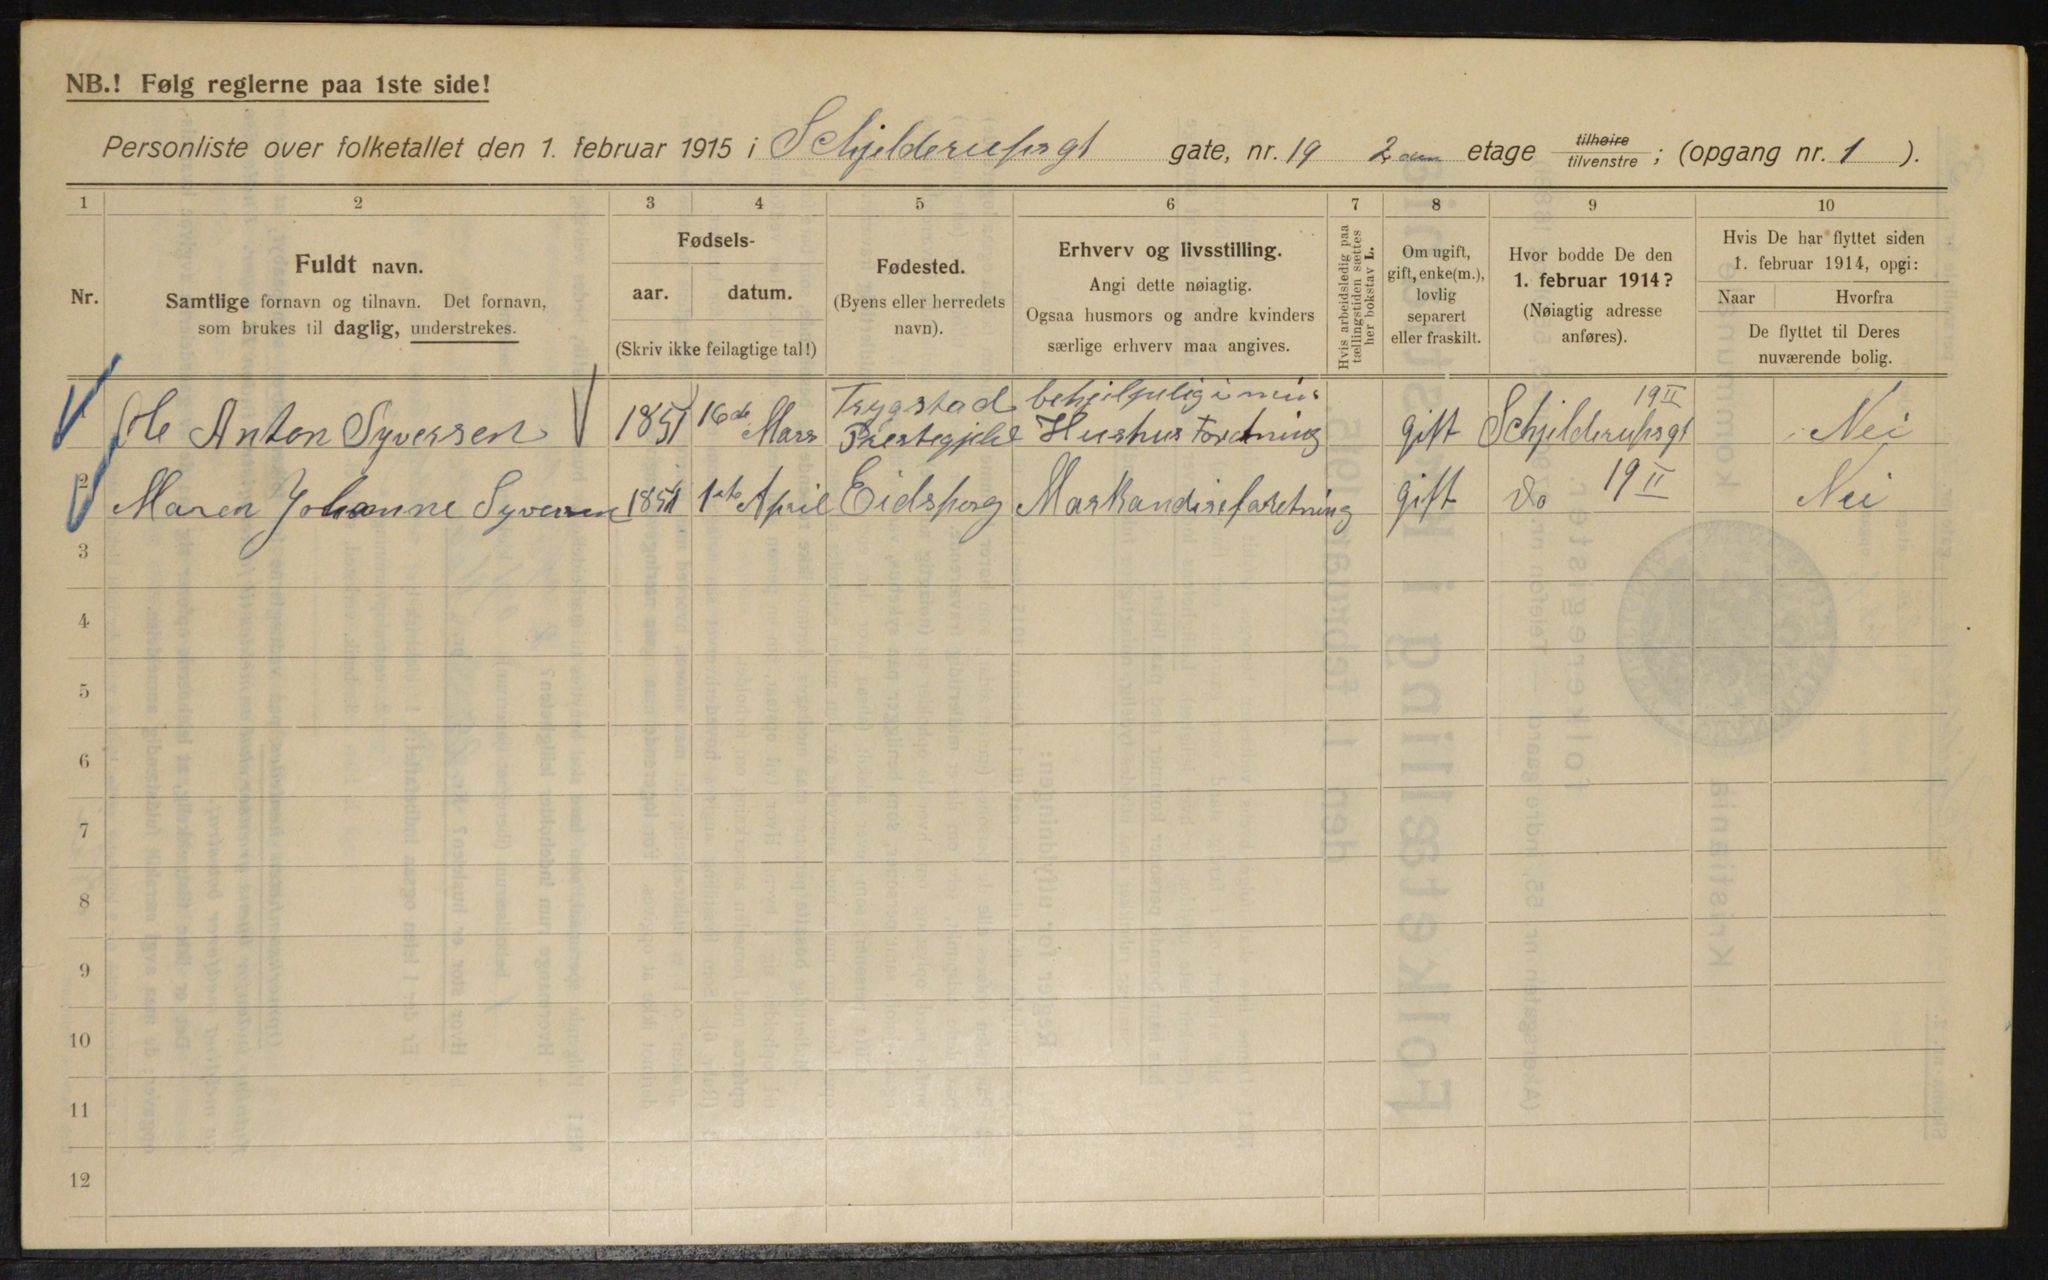 NB.! Følg reglerne paa 1ste side!
Personliste over folketallet den 1. februar 1915 i Schjelderupsgt gate, nr. 19 2den etage tilhøire tilvenstre ; (opgang nr. 1 ).
1 2 3 4 5 6 7 8 9 10
Nr.
Fuldt navn.
Samtlige fornavn og tilnavn. Det fornavn,
som brukes til daglig, understrekes.
Fødsels-
aar. datum.
(Skriv ikke feilagtige tal!)
Fødested.
(Byens eller herredets
navn).
Erhverv og livsstilling.
Angi dette nøiagtig.
Ogsaa husmors og andre kvinders
særlige erhverv maa angives.
Hvis arbeidsledig paa
tællingstiden sættes
her bokstav L.
Om ugift,
gift, enke(m.),
lovlig
separert
eller fraskilt.
Hvor bodde De den
1. februar 1914?
(Nøiagtig adresse
anføres).
Hvis De har flyttet siden
1. februar 1914, opgi:
Naar Hvorfra
De flyttet til Deres
nuværende bolig.
Trygstad behjelpelig i min 19 II
1 Ole Anton Syversen 1851 16de Mars Prestegjeld Hushus Foretning gift Schjelderupsgt Nei
2 Maren Johanne Syversen 1851 1ste April Eidsberg Markandiseforetning gift do 19 II Nei
3
4
5
6
7
8
9
10
11
12